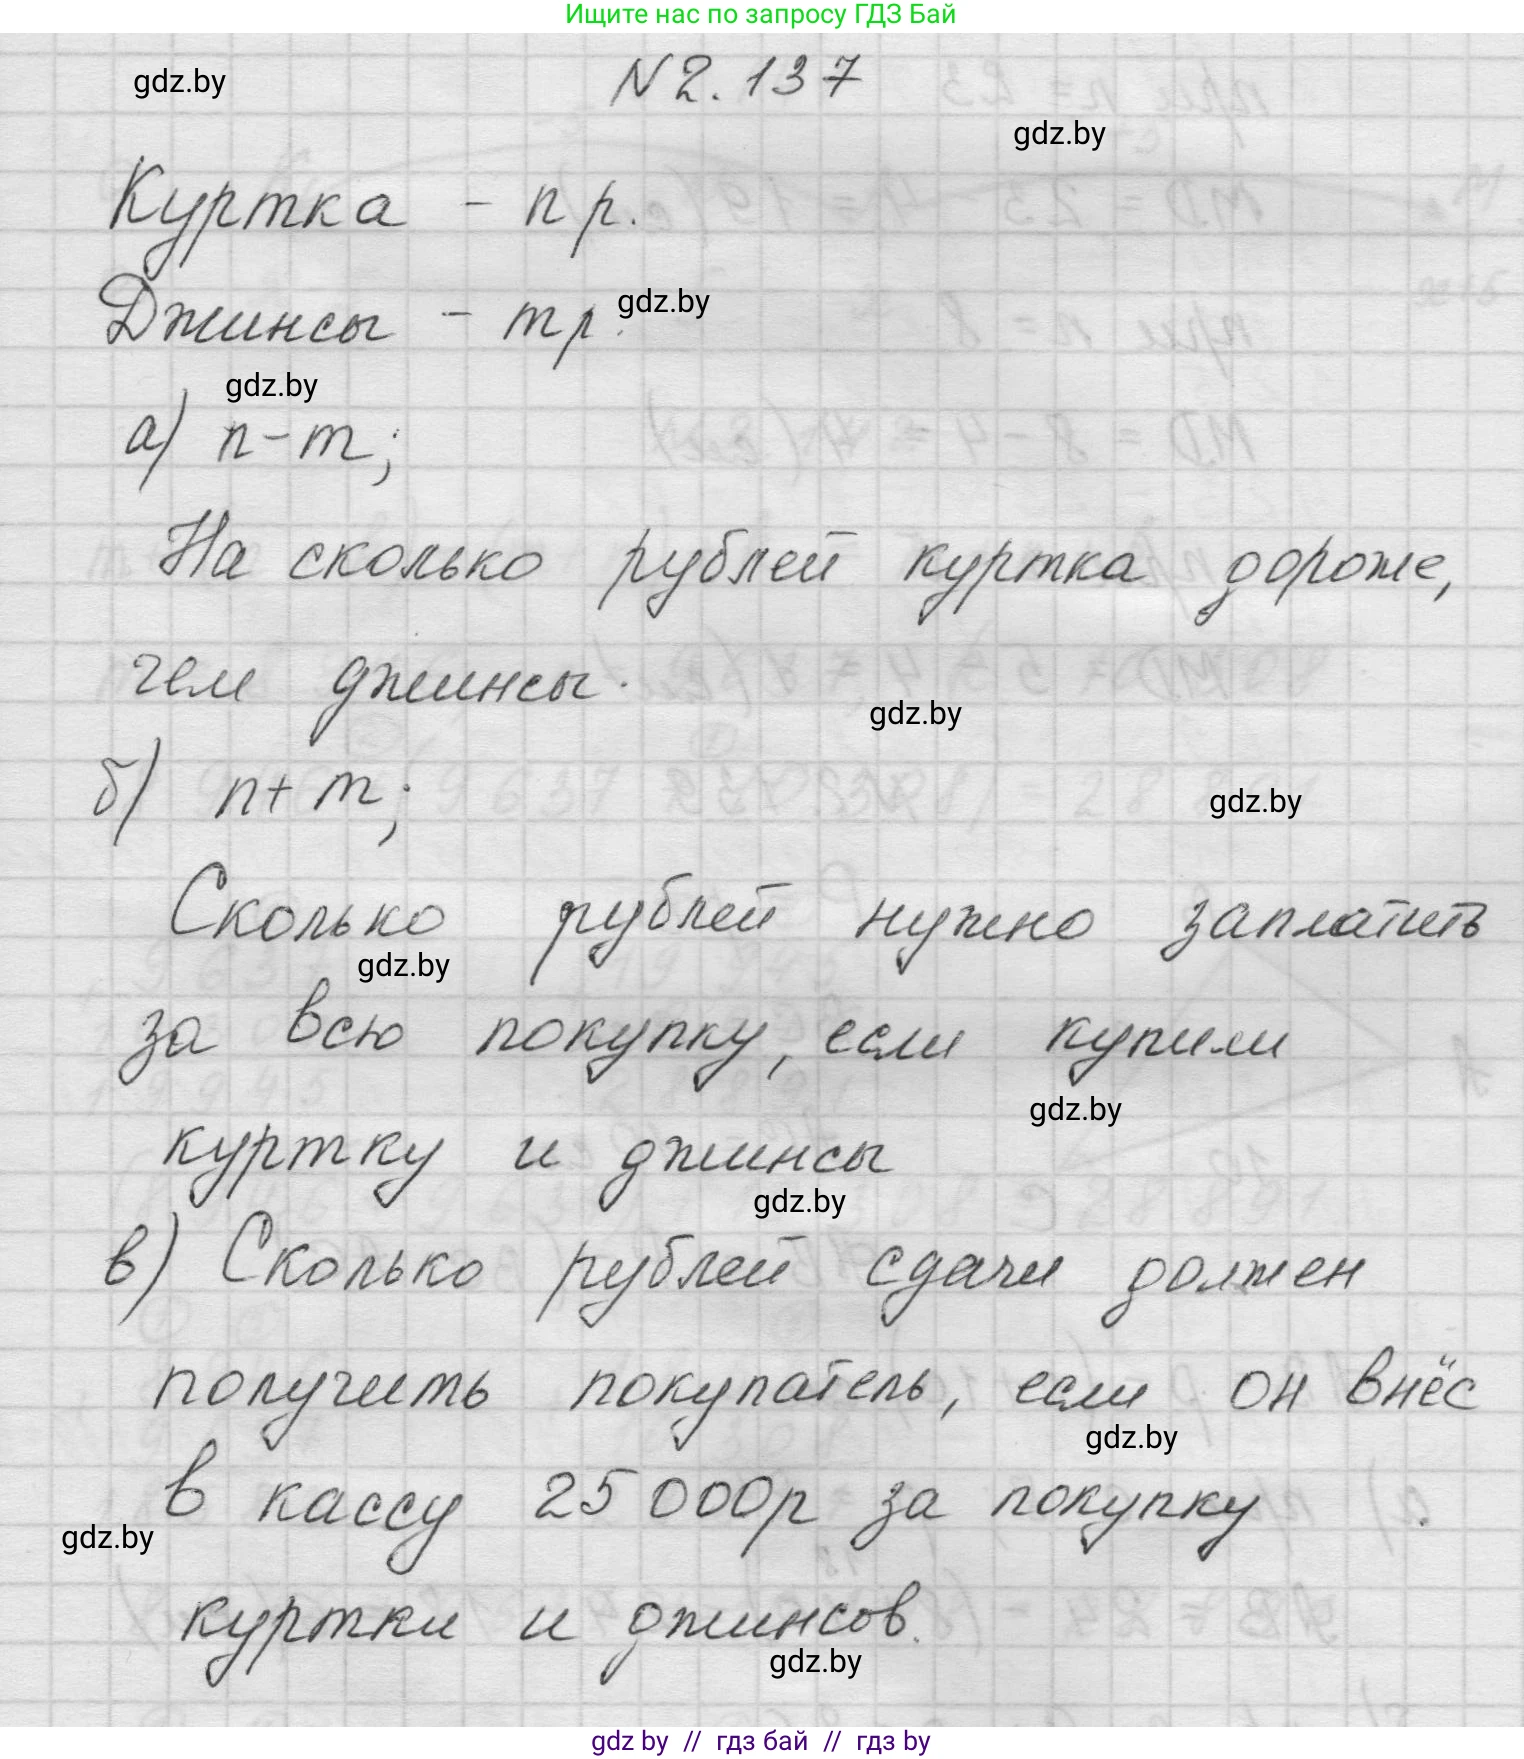 Ищите нас по запросу ГДЗ Бай
gdz.by
N 2.137
gdz.by
Куртка - n р.
Джинсы - m р.
gdz.by
gdz.by
а) n - m;
На сколько рублей куртка дороже,
чем джинсы.
gdz.by
б) n + m;
gdz.by
Сколько рублей нужно заплатить
gdz.by
за всю покупку, если купили
gdz.by
куртку и джинсы
gdz.by
в) Сколько рублей сдачи должен
получить покупатель, если он внёс
gdz.by
в кассу 25 000р за покупку
gdz.by
куртки и джинсов.
gdz.by
gdz by // гдз бай // гдз by